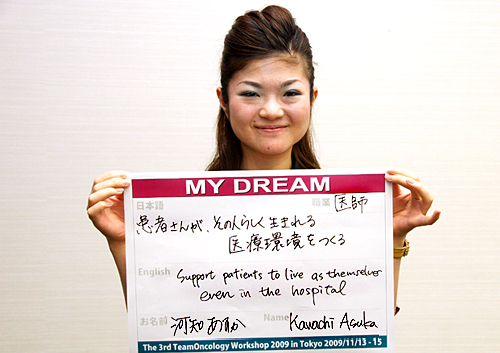 MY DREAM
日本語 職業 医師
患者さんが、その人らしく生きれる
医療環境をつくる
English Support patients to live as themselves
even in the hospital
お名前 河知 あすか Name Kawachi Asuka
The 3rd TeamOncology Workshop 2009 in Tokyo 2009/11/13 - 15